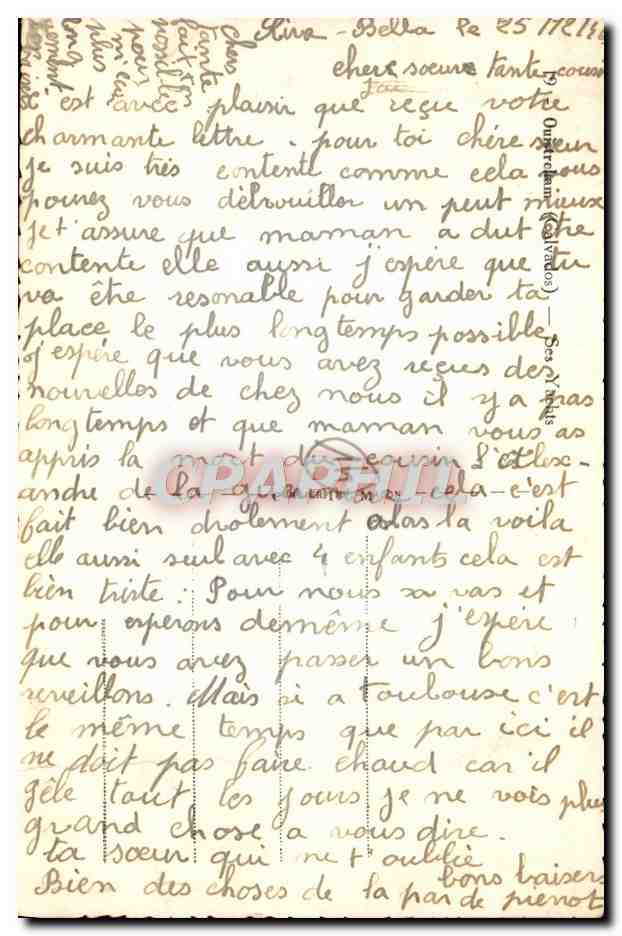 Riva-Bella le 25/12/
chere soeur tante cousin
J'ai
C'est avec plaisir que reçue votre
charmante lettre. pour toi chére soeur
je suis trés contente comme cela vous
pourez vous débrouiller un peut mieux
Je t'assure que maman a dut être
contente elle aussi j'espére que tu
va être resonable pour garder ta
place le plus longtemps possible
j'espére que vous avez reçues des
nouvelles de chez nous il y a pas
longtemps et que maman vous as
appris la mort du cousin d'Alex-
andre de la cela c'est
fait bien drolement alors la voila
elle aussi seul avec 4 enfants cela est
bien triste : Pour nous sa vas et
pour esperons demême j'espére
que vous avez passer un bons
reveillons. Mais si a toulouse c'est
le même temps que par ici il
ne doit pas faire chaud car il
gêle tout les jours je ne vois plus
grand chose a vous dire.
ta soeur qui ne t'oublie
bons baisers
Bien des choses de la par de pierrot
chers
tante
fait ton
possible
pour
m'ecri
plus
long
ement
Ouistreham (Calvados) — Ses Yachts
CPARAMA